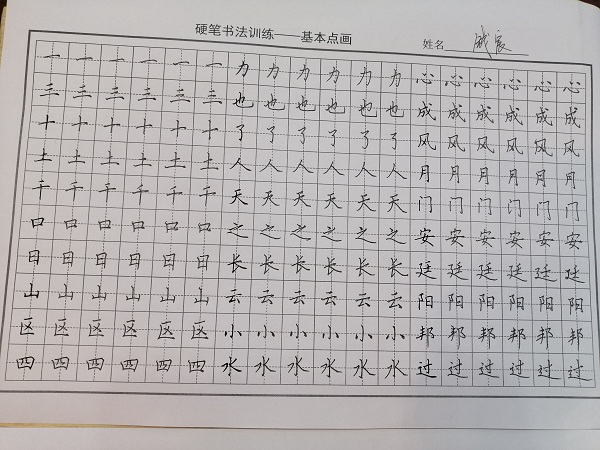 硬笔书法训练——基本点画
姓名
一一一一一一为为为为为为心心心心心心
三三三三三三也也也也也也成成成成成成
十十十十十十了了了了了了风风风风风风
土土土土土土人人人人人人月月月月月月
千千千千千千天天天天天天门门门门门门
口口口口口口之之之之之之安安安安安安
日日日日日日长长长长长长廷廷廷廷廷廷
山山山山山山云云云云云云阳阳阳阳阳阳
区区区区区区小小小小小小邦邦邦邦邦邦
四四四四四四水水水水水水过过过过过过